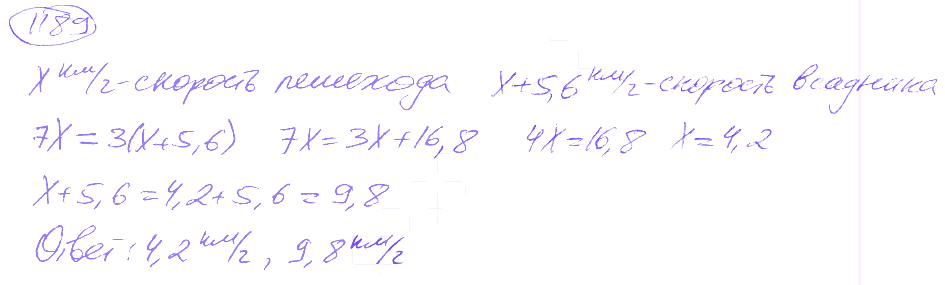 1189
x км/ч - скорость пешехода x+5,6 км/ч - скорость всадника
7x = 3(x+5,6) 7x = 3x+16,8 4x=16,8 x=4,2
x+5,6=4,2+5,6=9,8
Ответ: 4,2 км/ч, 9,8 км/ч